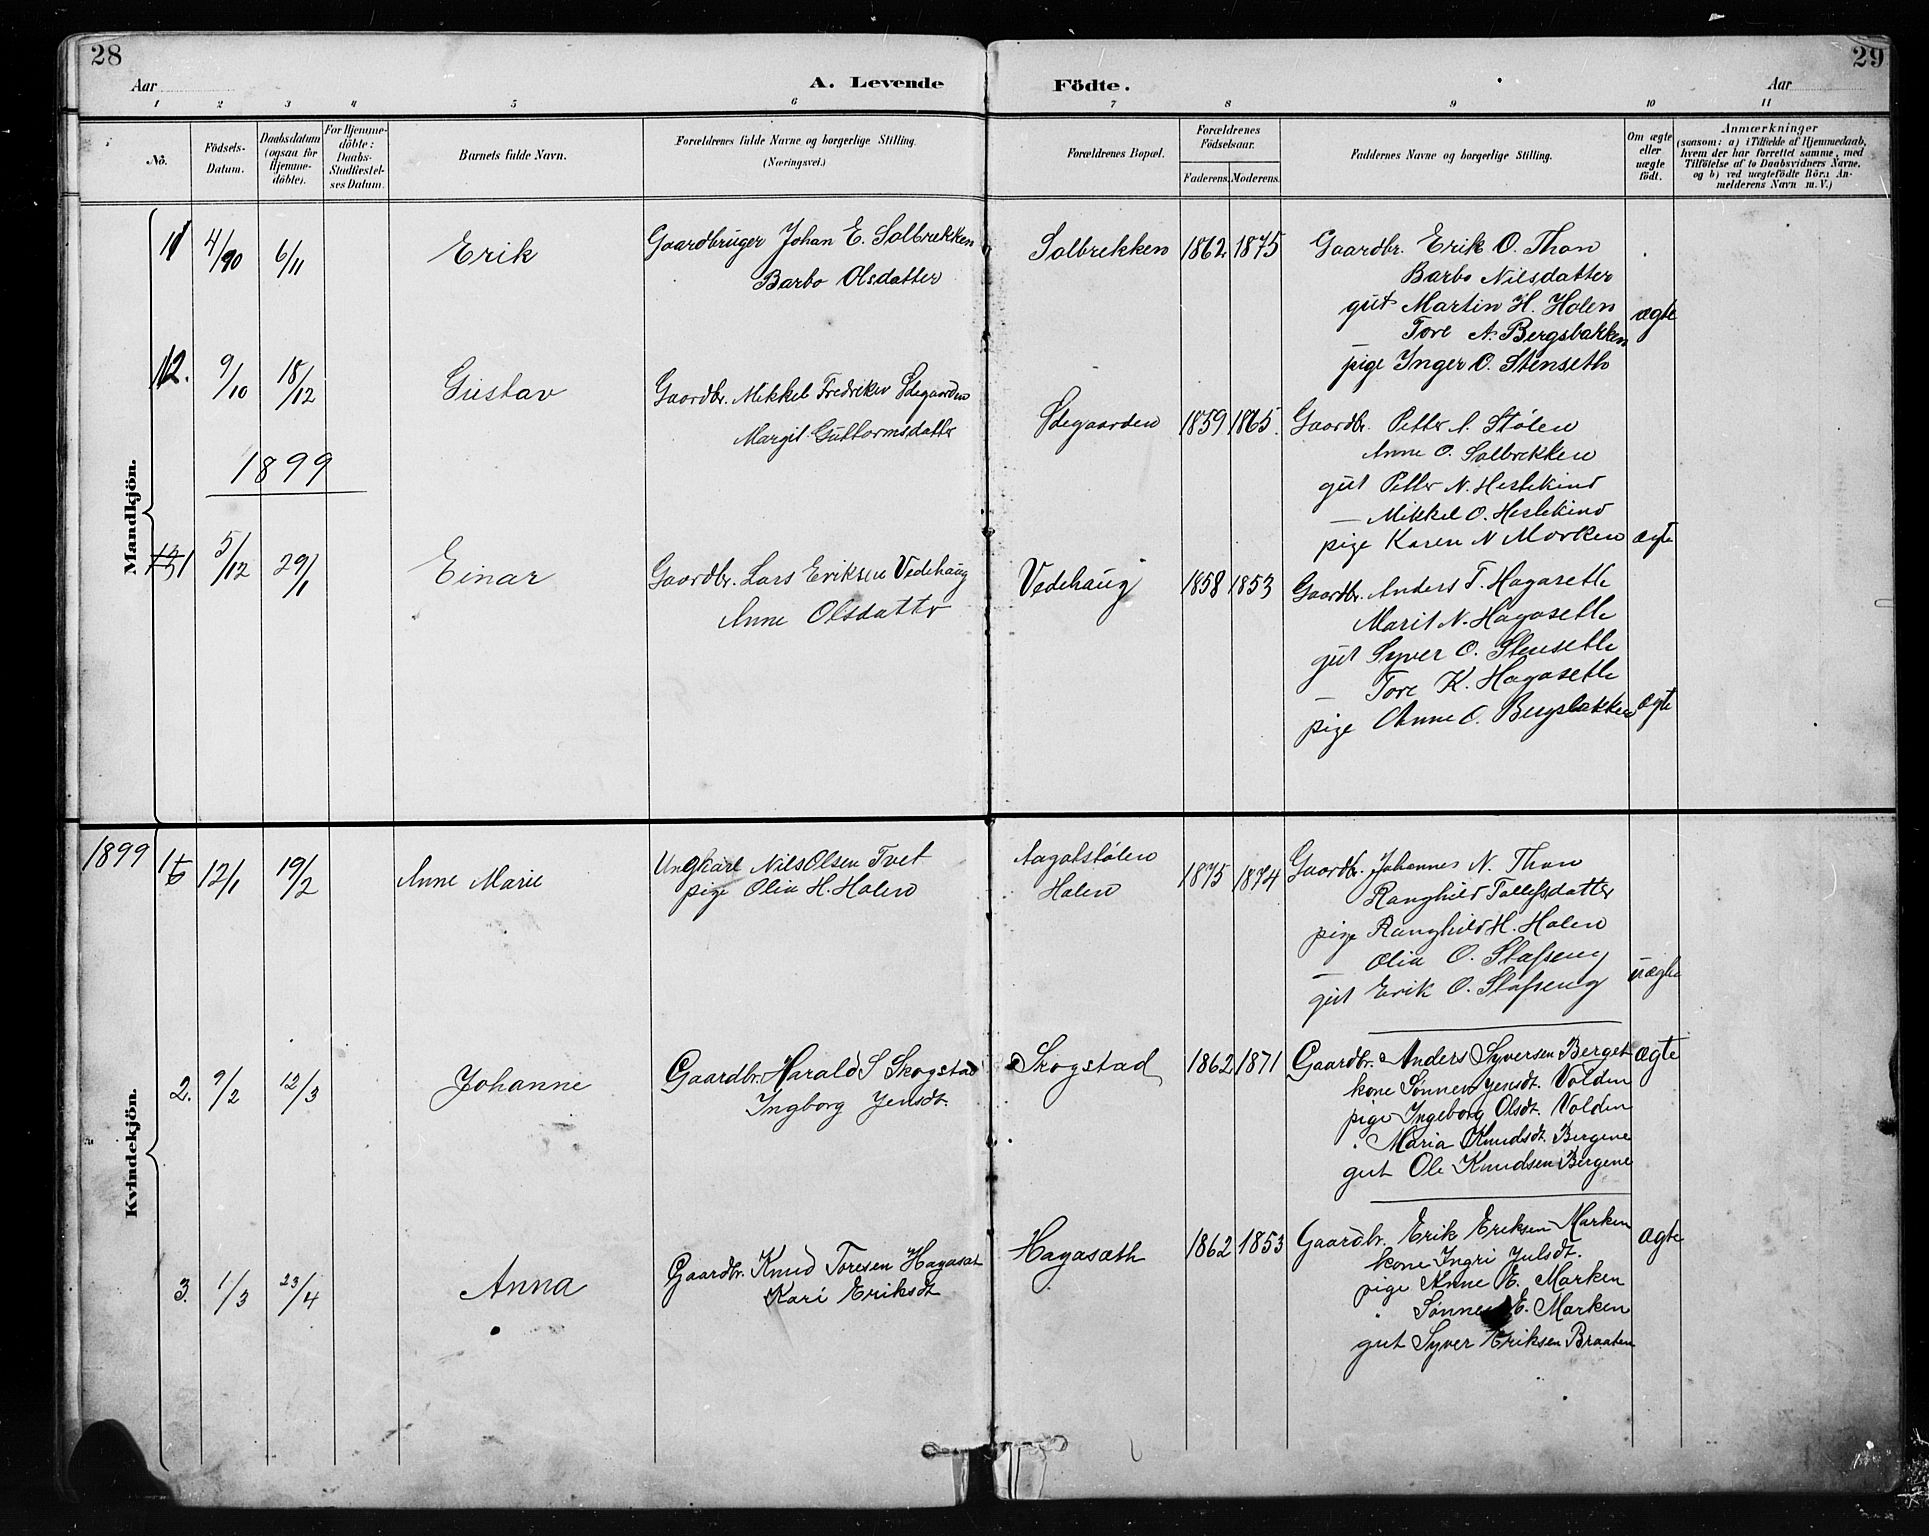 28
29
Aar
A. Levende Födte.
Aar
1 2 3 4 5 6 7 8 9 10 11
No.
Födsels-Datum.
Daabsdatum (ogsaa for Hjemme-döbte).
For Hjemme-döbte: Daabs-Stadfæstel-ses Datum.
Barnets fulde Navn.
Forældrenes fulde Navne og borgerlige Stilling.
(Næringsvei.)
Forældrenes Bopæl.
Forældrenes Födselsaar.
Faderens. Moderens.
Faddernes Navne og borgerlige Stilling.
Om ægte eller uægte födt.
Anmærkninger
(saasom: a) i Tilfælde af Hjemmedaab, hvem der har forrettet samme, med Tilföielse af to Daabsvidners Navne, og b) ved uægtefödte Börn An-melderens Navn m. V.)
Mandkjön.
11 4/90 6/11 Erik Gaardbruger Johan E. Solbrekken Solbrekken 1862 1875 Gaardbr. Erik O. Thon
Barbo Olsdatter
Barbo Nilsdatter
gut Martin H. Holen ægte
Tore A. Bergsbakken
pige Inger O. Stenseth
12. 9/10 18/12 Gustav Gaardbr. Mikkel Fredriksen Ødegaarden Ødegaarden 1859 1865. Gaardbr. Petter A. Stølen
Margit Guttormsdatter
Anne O. Solbrekken
gut Petter N. Heslekind
— Mikkel O. Heslekind
pige Karen N Morken ægte
1899
1 5/12 29/1 Einar Gaardbr. Lars Eriksen Vedehaug Vedehaug 1858 1853 Gaardbr. Anders T. Hagaseth
Anne Olsdatter
Marit N. Hagaseth
gut Syver O. Stenseth
— Tore K. Hagaseth
pige Anne O. Bergsbakken ægte
Kvindekjön.
1899 1 12/1 19/2 Anne Marie Ungkarl Nils Olsen Tvet Aagotstølen 1875 1874 Gaardbr. Johannes N. Thon
pige Olia H. Holen Holen
Ranghild Tollefsdatter
pige Ranghild H. Holen
— Olia O. Stafseng
gut Erik O. Stafseng uægte
2. 9/2 12/3 Johanne Gaardbr. Harald S Skogstad Skogstad 1862 1871 Gaardbr. Anders Syversen Berget ægte
Ingborg Jensdt.
kone Sønnev Jensdt. Volden
pige Ingeborg Olsdt. Volden
Maria Knudsdt. Bergene
gut Ole Knudsen Bergene
3. 1/3 23/4 Anna Gaardbr. Knud Toresen Hagasæt Hagasæth 1862 1853 Gaardbr. Erik Eriksen Marken ægte
Kari Eriksdt
kone Ingri Julsdt.
pige Anne E. Marken
" Sønnev E. Marken
gut Syver Eriksen Braaten